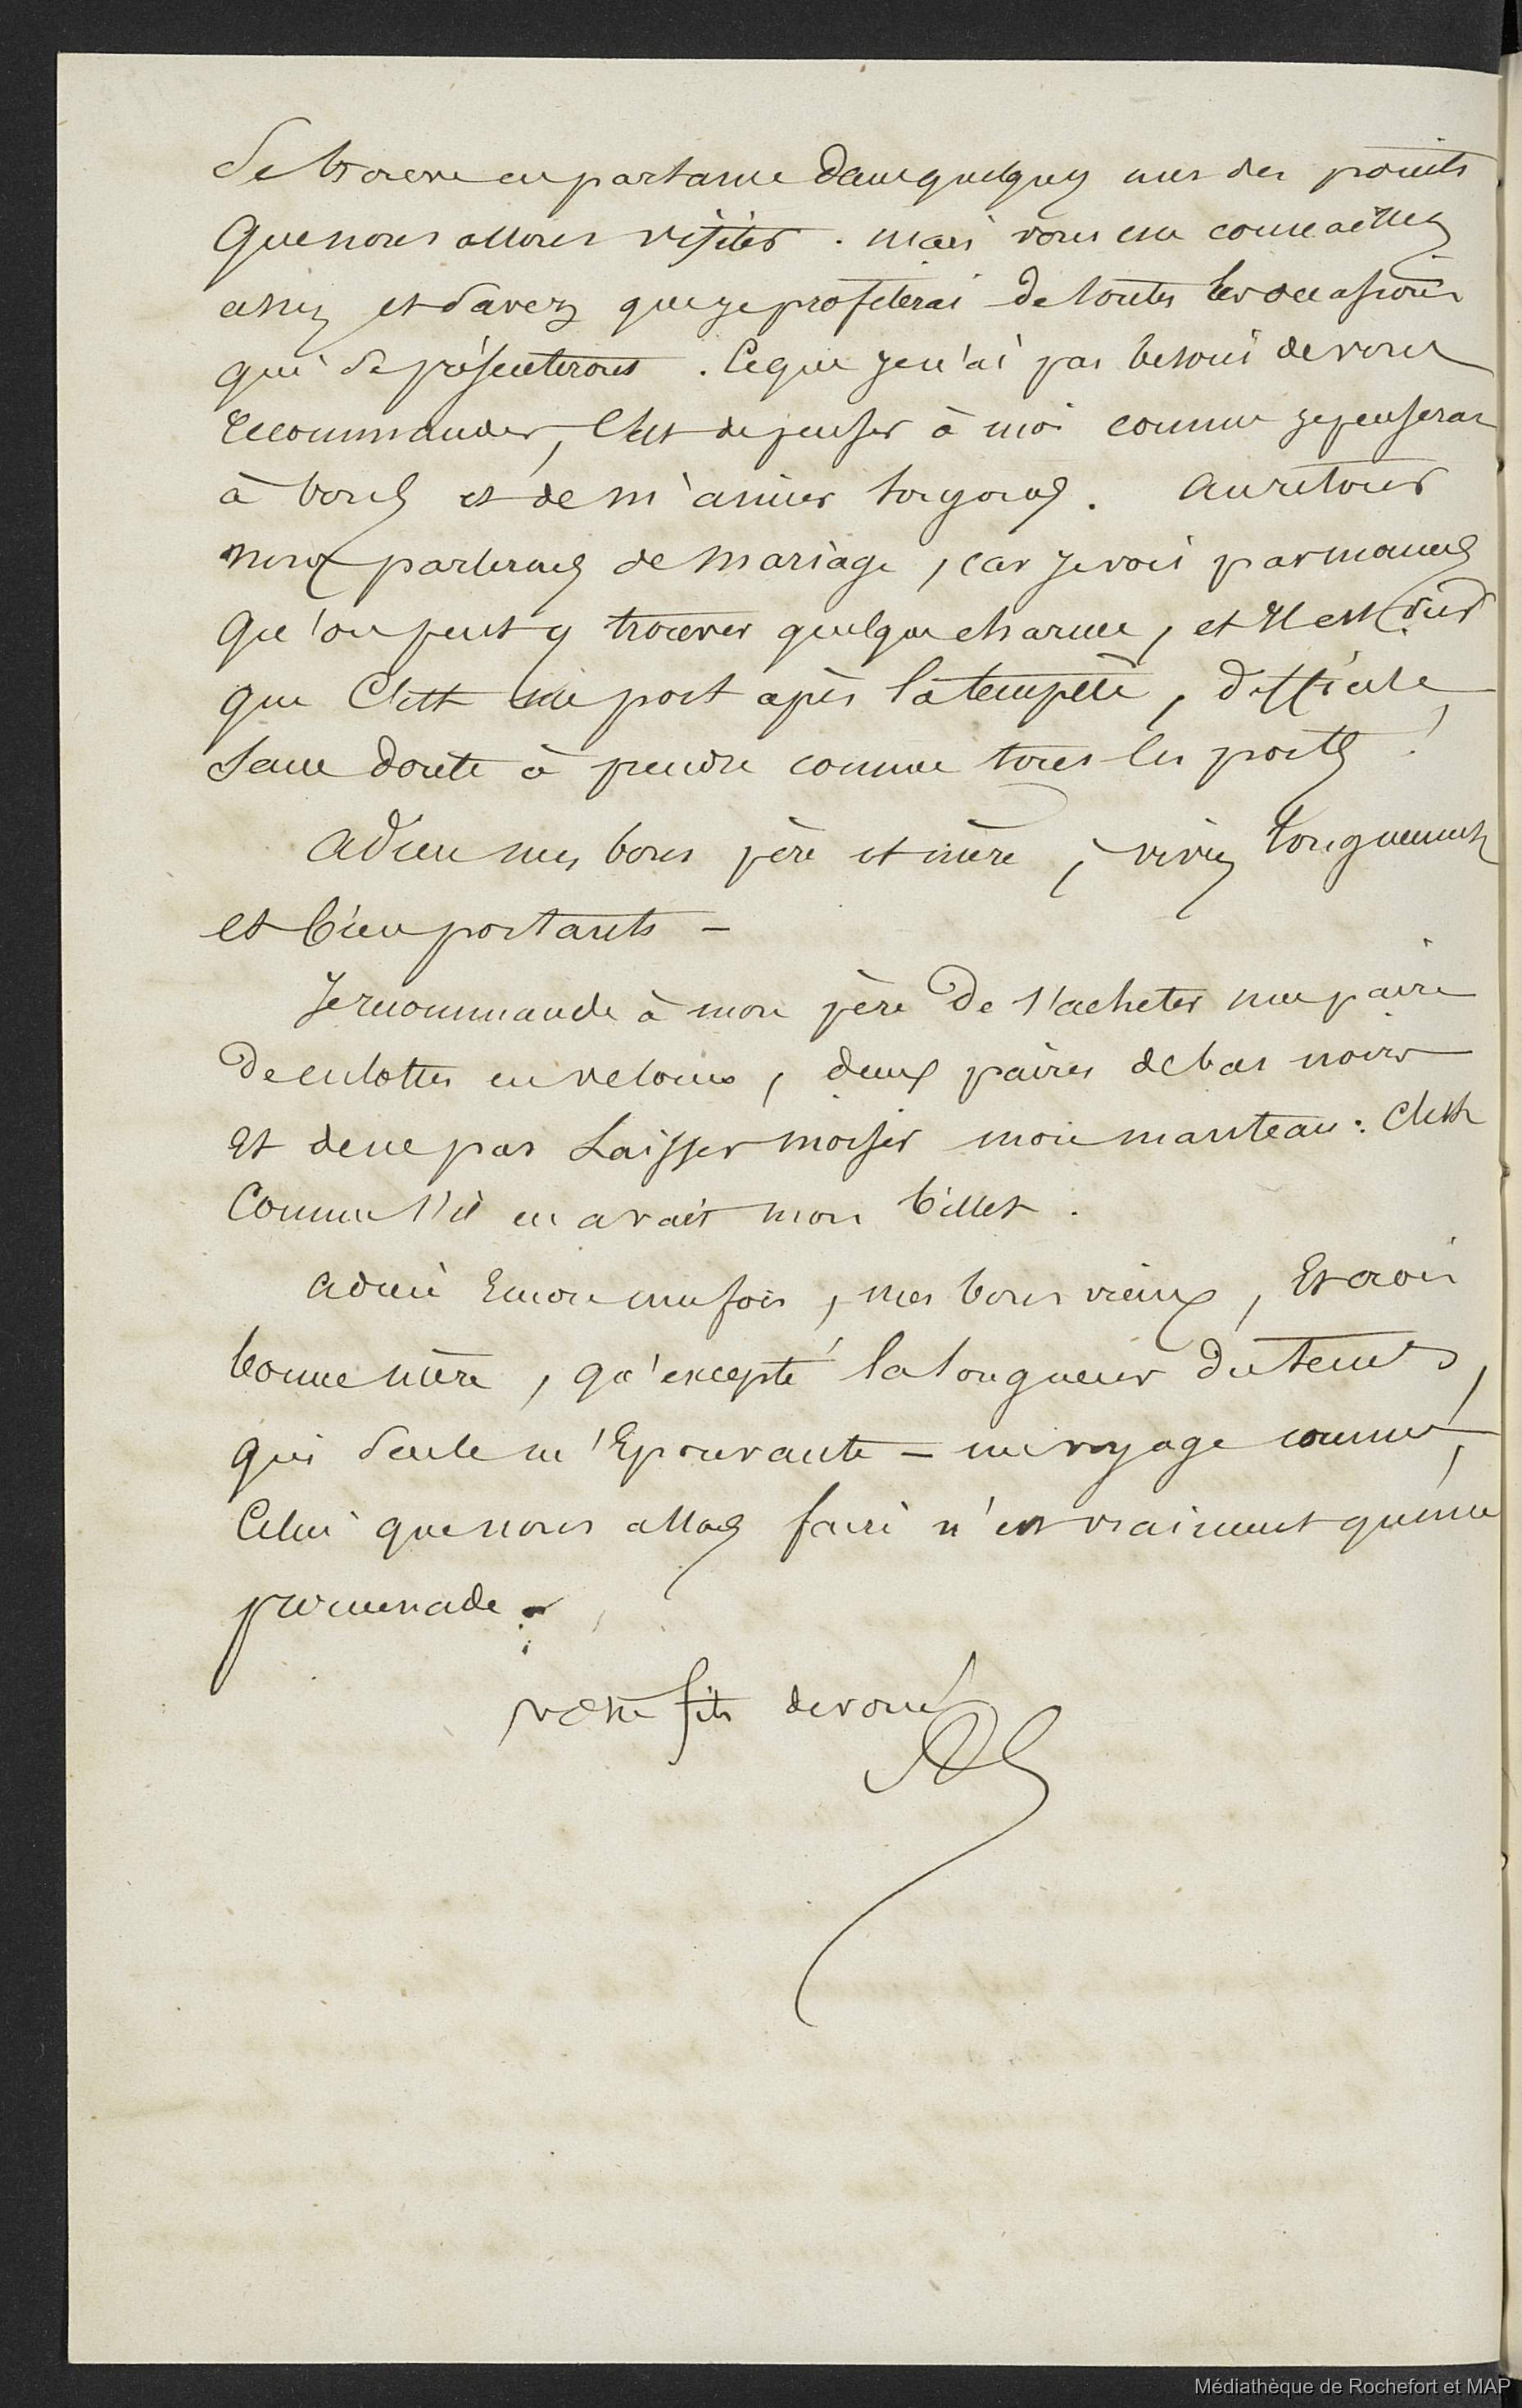 se trouve en partance dans quelques uns des points
que nous allons visiter. mais vous me connaissez
assez et savez que je profiterai de toutes les occasions
qui se présenterons. Ce que je n'ai pas besoin de vous
recommander, c'est de penser à moi comme je penserai
à vous et de m'aimer toujours. au retour
nous parlerons de mariage, car je vois par
qu'on peut y trouver quelque charme, et il est sûr
que c'est un port après la tempête, difficile
sans doute à prendre comme tous les ports !
adieu mes bons père et mère, vivez longuement
et bien portants -
Je recommande à mon père de s'acheter une paire
de culottes en velours, deux paires de bas noirs
et de ne pas laisser moisir mon manteau : c'est
comme s'il en avait mon billet.
adieu Encore une fois, mes bons vieux, Et crois
bonne mère, qu'excepté la longueur du tems,
qui seule m'Epouvante - un voyage comme
celui que nous allons faire n'est vraiment qu'une
promenade.
votre fils dévoué
Médiathèque de Rochefort et MAP